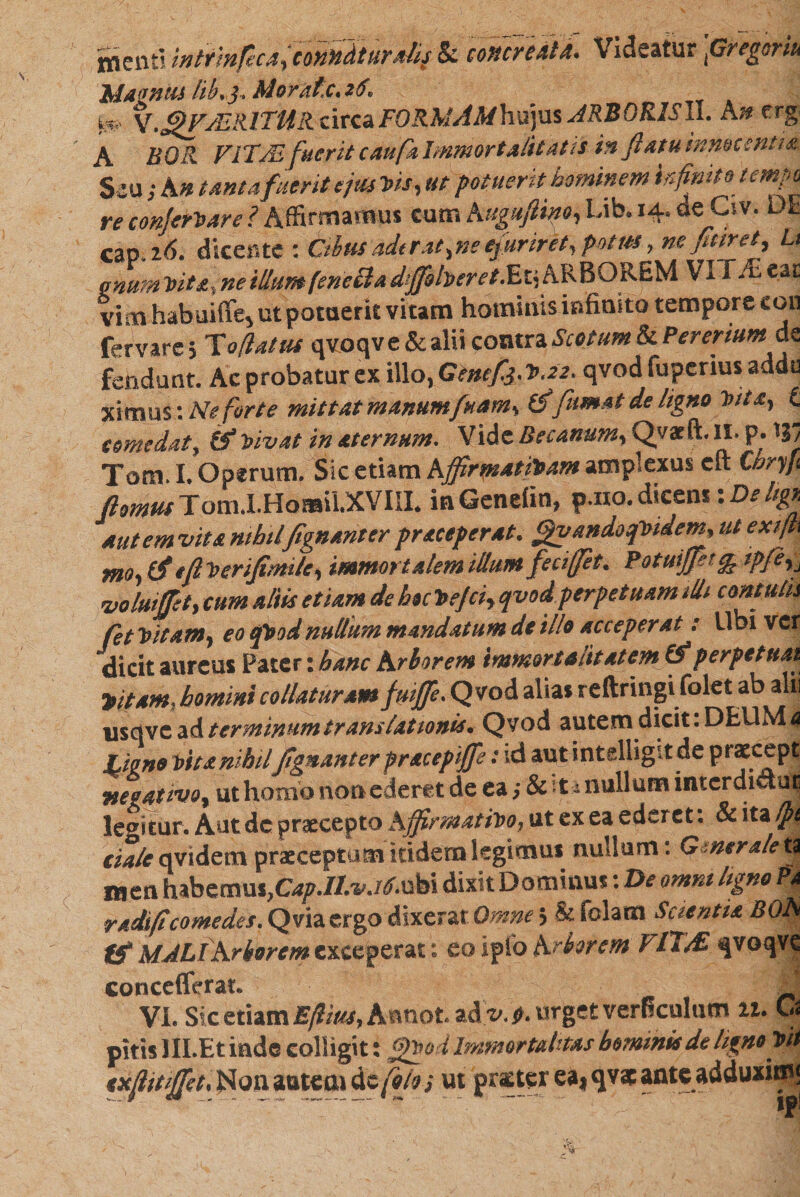 menti intrinseca, connaturalis & concreata. Videatur Gregoriu
Magnus lib. 3. Moral. c. 26.
V. QVÆRITUR circa FORMAM hujus ARBORIS II. An erg
A BOR VITÆ fuerit causa Immortalitatis in statu innocentiæ
Seu; An tanta fuerit ejus vis, ut potuerit hominem infinito tempo
re conservare? Affirmamus cum Augustino, Lib. 14. de Civ. DE
cap. 26. dicente: Cibus aderat, ne esuriret, potus, ne sitiret, Li
gnum vitæ, ne illum senecta dissolveret. Etq; ARBOREM VITÆ eac
vim habuisse, ut potuerit vitam hominis infinito tempore con
servare; Tostatus qvoqve & alii contra Scotum & Pererium de
fendunt. Ac probatur ex illo, Genes. 3. v. 22. qvod superius addu
ximus: Ne forte mittat manum suam, & sumat de ligno vitæ, &
comedat, & vivat in æternum. Vide Becanum, Qvæst. 11. p. 137
Tom. I. Operum. Sic etiam Affirmativam amplexus est Chryso
stomus Tom. I. Homil. XVIII. in Genesin, p. 110. dicens: De lign
autem vitæ nihil signanter præceperat. Qvandoqvidem, ut existi
mo, & est verisimile, immortalem illum fecisset. Potuisset & ipse,
voluisset, cum aliis etiam de hoc vesci, qvod perpetuam illi contulis
set vitam, eo qvod nullum mandatum de illo acceperat: Ubi ver
dicit aureus Pater: hanc Arborem immortalitatem & perpetuam
vitam, homini collaturam fuisse. Qvod alias restringi solet ab alii
usqve ad terminum translationis. Qvod autem dicit: DEUM a
Ligno vitæ nihil signanter præcepisse: id aut intelligit de præcept
negativo, ut homo non ederet de ea; & ita nullum interdictum
legitur. Aut de præcepto Affirmativo, ut ex ea ederet: & ita spe
ciale qvidem præceptum itidem legimus nullum: Generale ta
men habemus, Cap. II. v. 16. ubi dixit Dominus: De omni ligno Pa
radisi comedes. Qvia ergo dixerat Omne; & solam Scientiæ BON
& MALI Arborem exceperat: eo ipso Arborem VITÆ qvoqve
concesserat.
VI. Sic etiam Estius, Annot. ad v. 9. urget versiculum 22. Ca
pitis III. Et inde colligit: Qvod Immortalitas hominis de ligno vit
exstitisset. Non autem de solo; ut præter ea, qvæ ante adduximus
ip